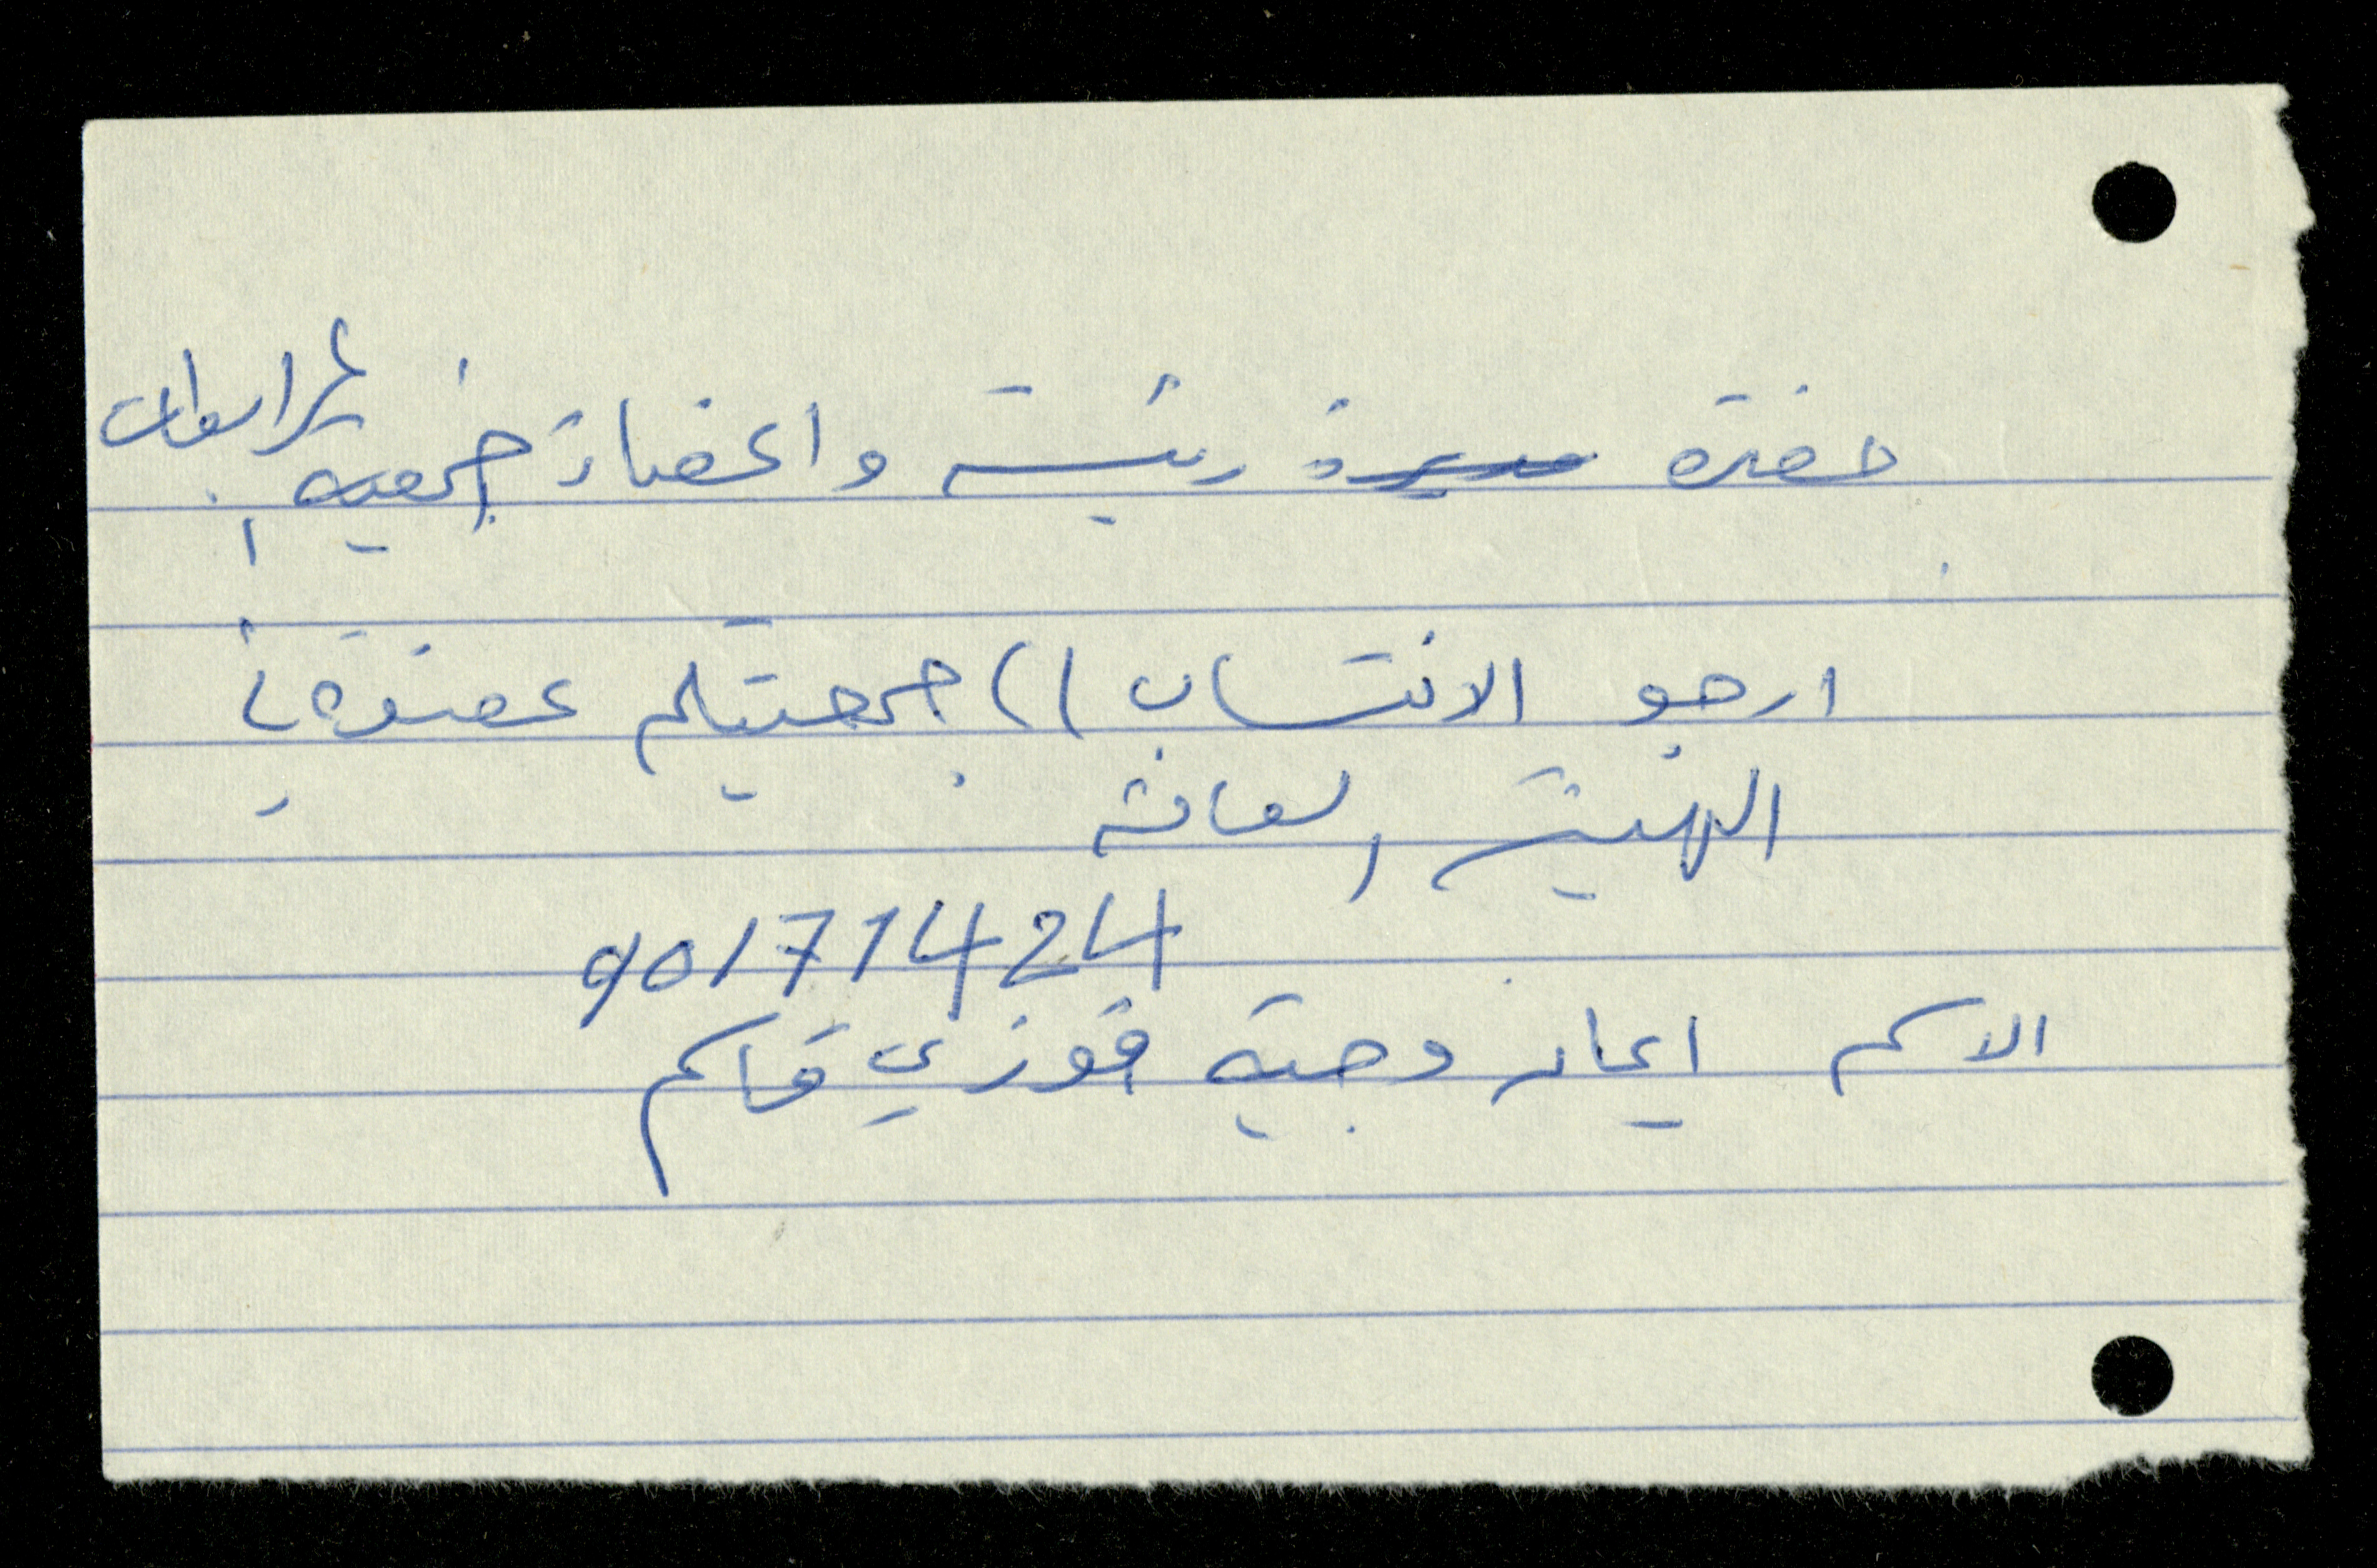 حضرة مديرة رئيسة واعضاء جمعية
ارجو الانتساب الى جمعيتكم عضوة في
الهيئة العامة
901714 24
الاسم ايمان وجيه فوزي قاسم